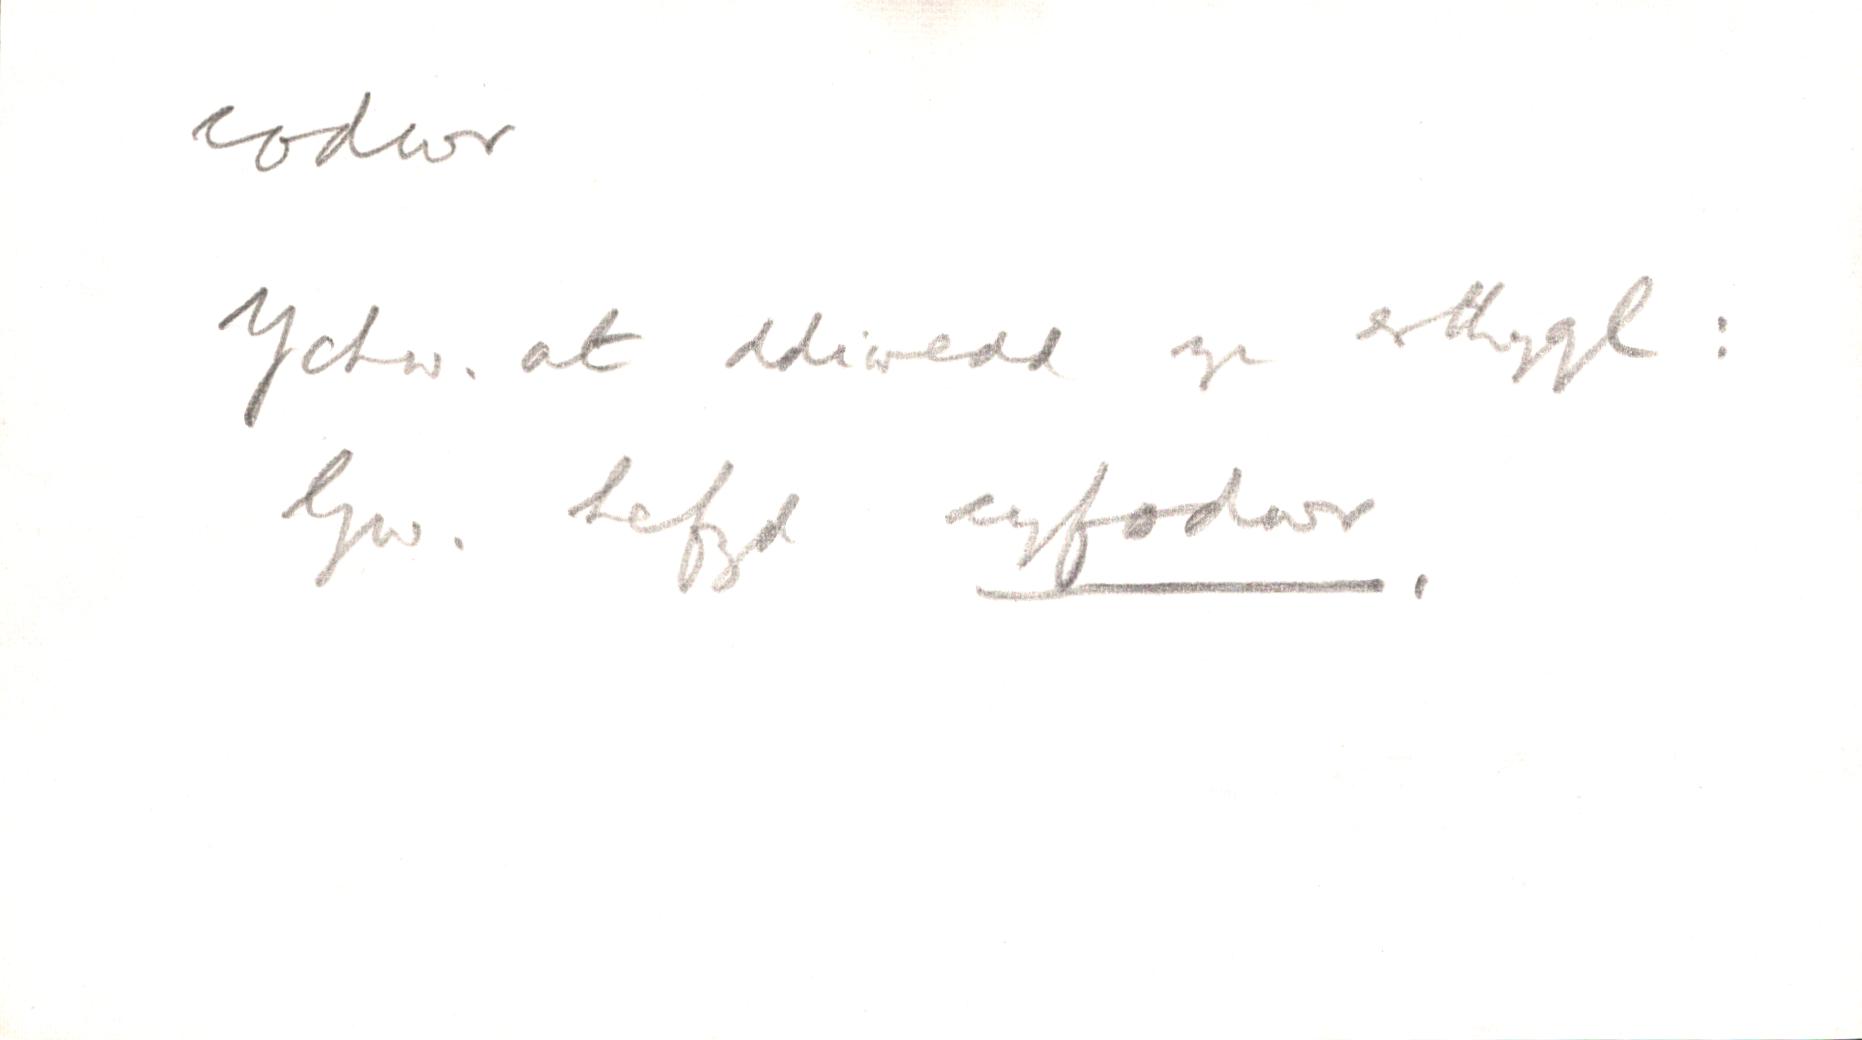 codwr
Ychw. at ddiwedd yr erthygl :
Gw. hefyd cyfodwr.